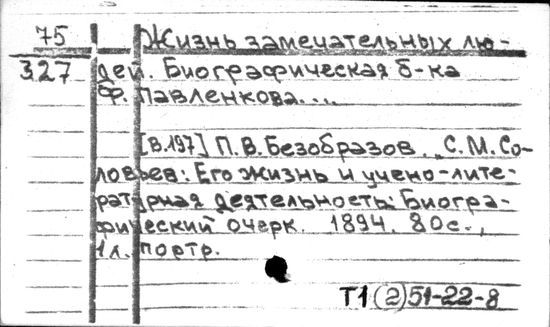 75
327
Жизнь замечательных лю-
дей. Биографическая б-ка
Ф. Павленкова....
[В.197] П.В.Безобразов. С.М.Со-
ловьев: Его жизнь и учено-лите-
ратурная деятельность: Биогра-
фический очерк. 1894. 80с.,
1л. портр.
Т1(2)51-22-8